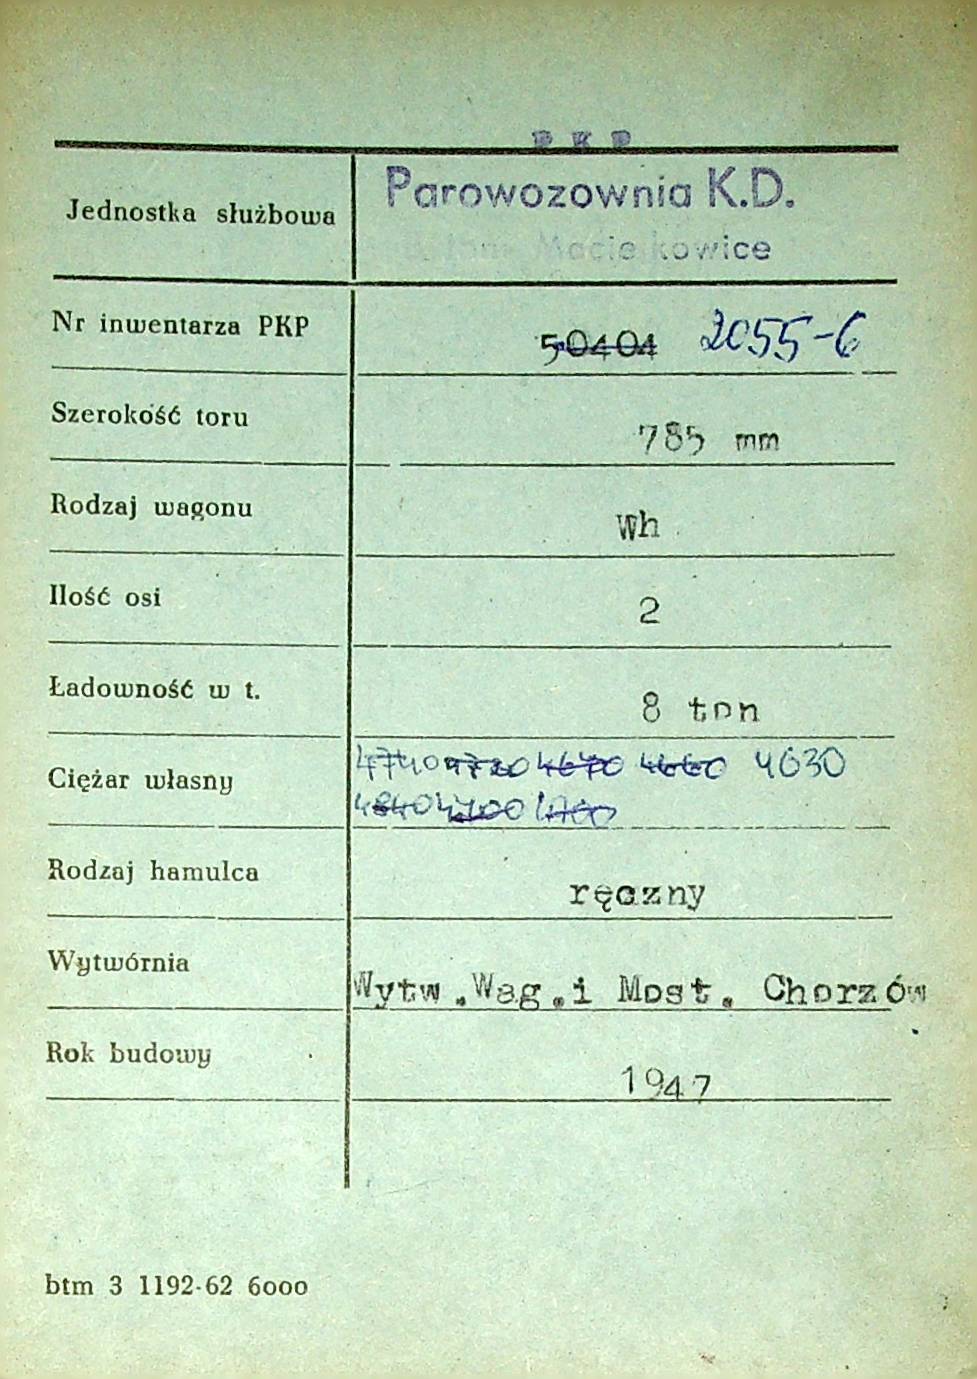 P K P
Jednostka służbowa Parowozownia K.D.
Nr inwentarza PKP 50404 2055-6
Szerokość toru 785 mm
Rodzaj wagonu Wh
Ilość osi 2
Ładowność w t. 8 ton
Ciężar własny 4740 4720 4670 4660 4630
4840 4700
Rodzaj hamulca ręczny
Wytwórnia Wytw.Wag.i Most. Chorzów
Rok budowy 1947
btm 3 1192-62 6000